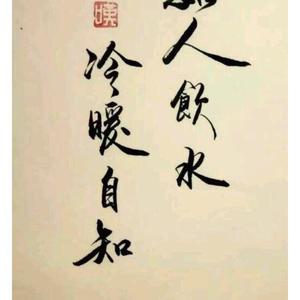 人飲水
冷暖自知